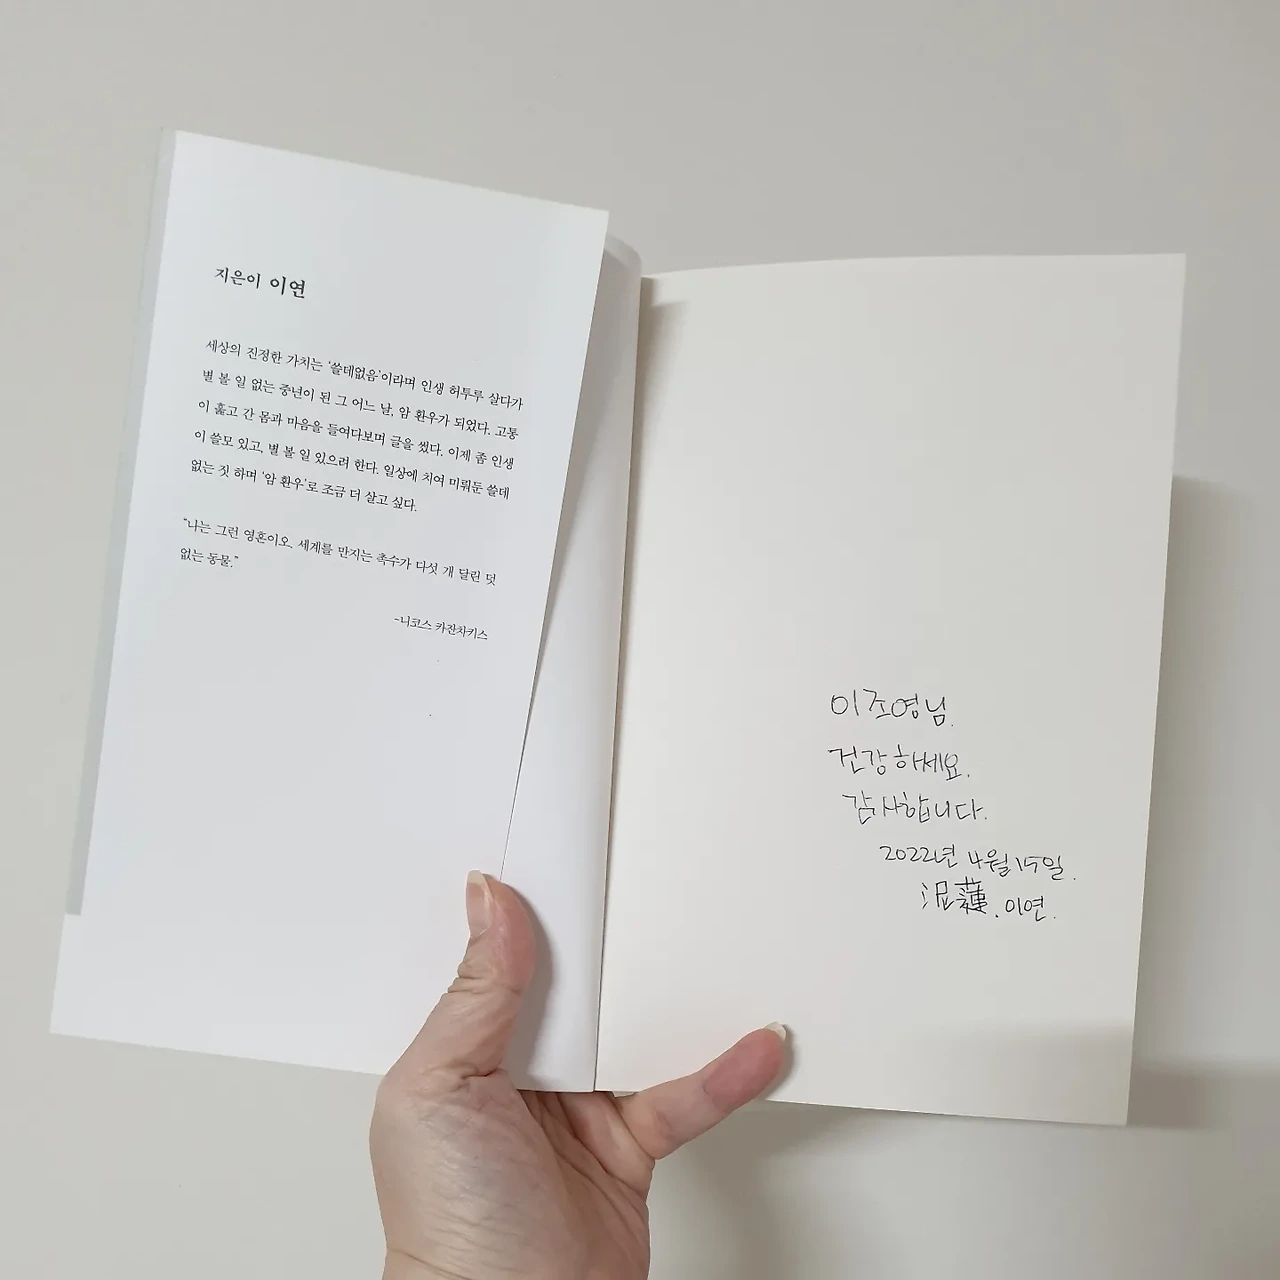 지은이 이연
세상의 진정한 가치는 '쓸데없음'이라며 인생 허투루 살다가
별 볼 일 없는 중년이 된 그 어느 날, 암 환우가 되었다. 고통
이 훑고 간 몸과 마음을 들여다보며 글을 썼다. 이제 좀 인생
이 쓸모 있고, 별 볼 일 있으려 한다. 일상에 치여 미뤄둔 쓸데
없는 짓 하며 '암 환우'로 조금 더 살고 싶다.
"나는 그런 영혼이오. 세계를 만지는 촉수가 다섯 개 달린 덧
없는 동물."
-니코스 카잔차키스
이조영님.
건강하세요.
감사합니다.
2022년 4월 15일.
泥蓮. 이연.